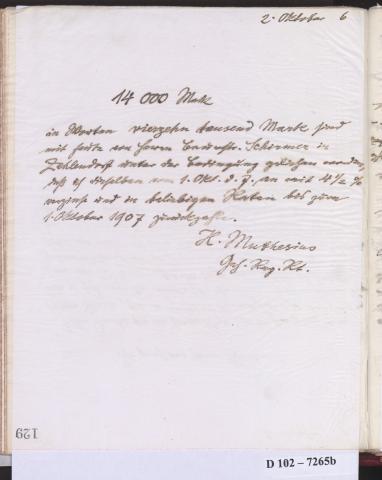 2. Oktober 6
14 000 Mark
in Worten vierzehn tausend Mark sind
mir heute von Herrn Schirmer in
Zehlendorf unter der Bedingung geliehen worden,
daß ich dieselben vom 1. Okt. d. J. an mit 4 1/2 %
verzinse und in beliebigen Raten bis zum
1. Oktober 1907 zurückzahle.
H. Muthesius
Geh. Reg. Rt.
129
D 102 – 7265b